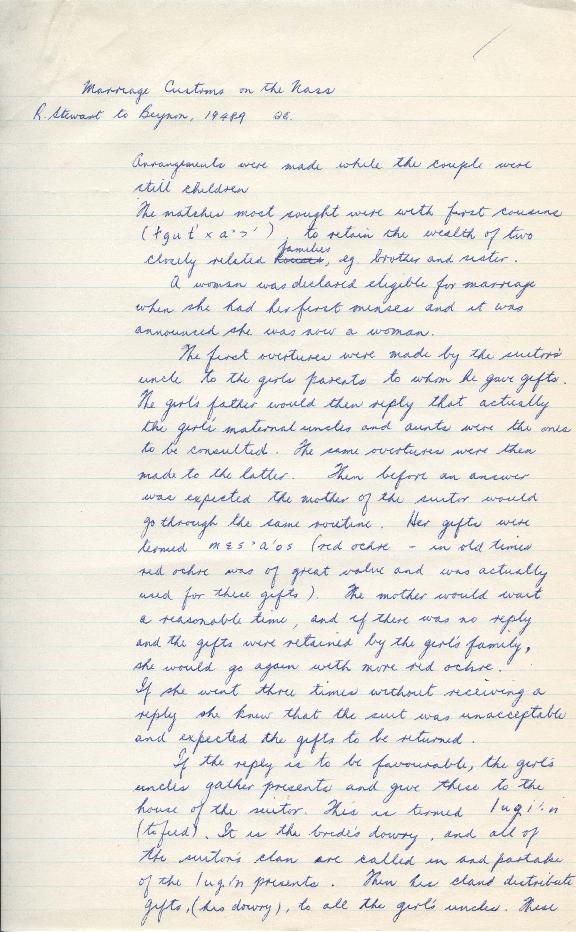 Marriage Customs on the Nass
R. Stewart to Beynon, 1948?9
Arrangements were made while the couple were
still children
The matches most sought were with first cousins
(łgu t'xa·ɔ'), to retain the wealth of two
closely related houses families, eg. brother and sister.
A woman was declared eligible for marriage
when she had her first menses and it was
announced she was now a woman.
The first overtures were made by the suitor's
uncle to the girls parents to whom he gave gifts.
The girl's father would then reply that actually
the girls' maternal uncles and aunts were the ones
to be consulted. The same overtures were then
made to the latter. Then before an answer
was expected the mother of the suitor would
go through the same routine. Her gifts were
termed mɛs·a'os (red ochre - in old times
red ochre was of great value and was actually
used for these gifts). The mother would wait
a reasonable time, and if there was no reply
and the gifts were retained by the girl's family,
she would go again with more red ochre.
If she went three times without receiving a
reply she knew that the suit was unacceptable
and expected the gifts to be returned.
If the reply is to be favourable, the girl's
uncles gather presents and give these to the
house of the suitor. This is termed lugi'n
(to feed). It is the bride's dowry, and all of
the suitor's clan are called in and partake
of the lugi'n presents. Then his cland distribute
gifts, (his dowry), to all the girl's uncles. These